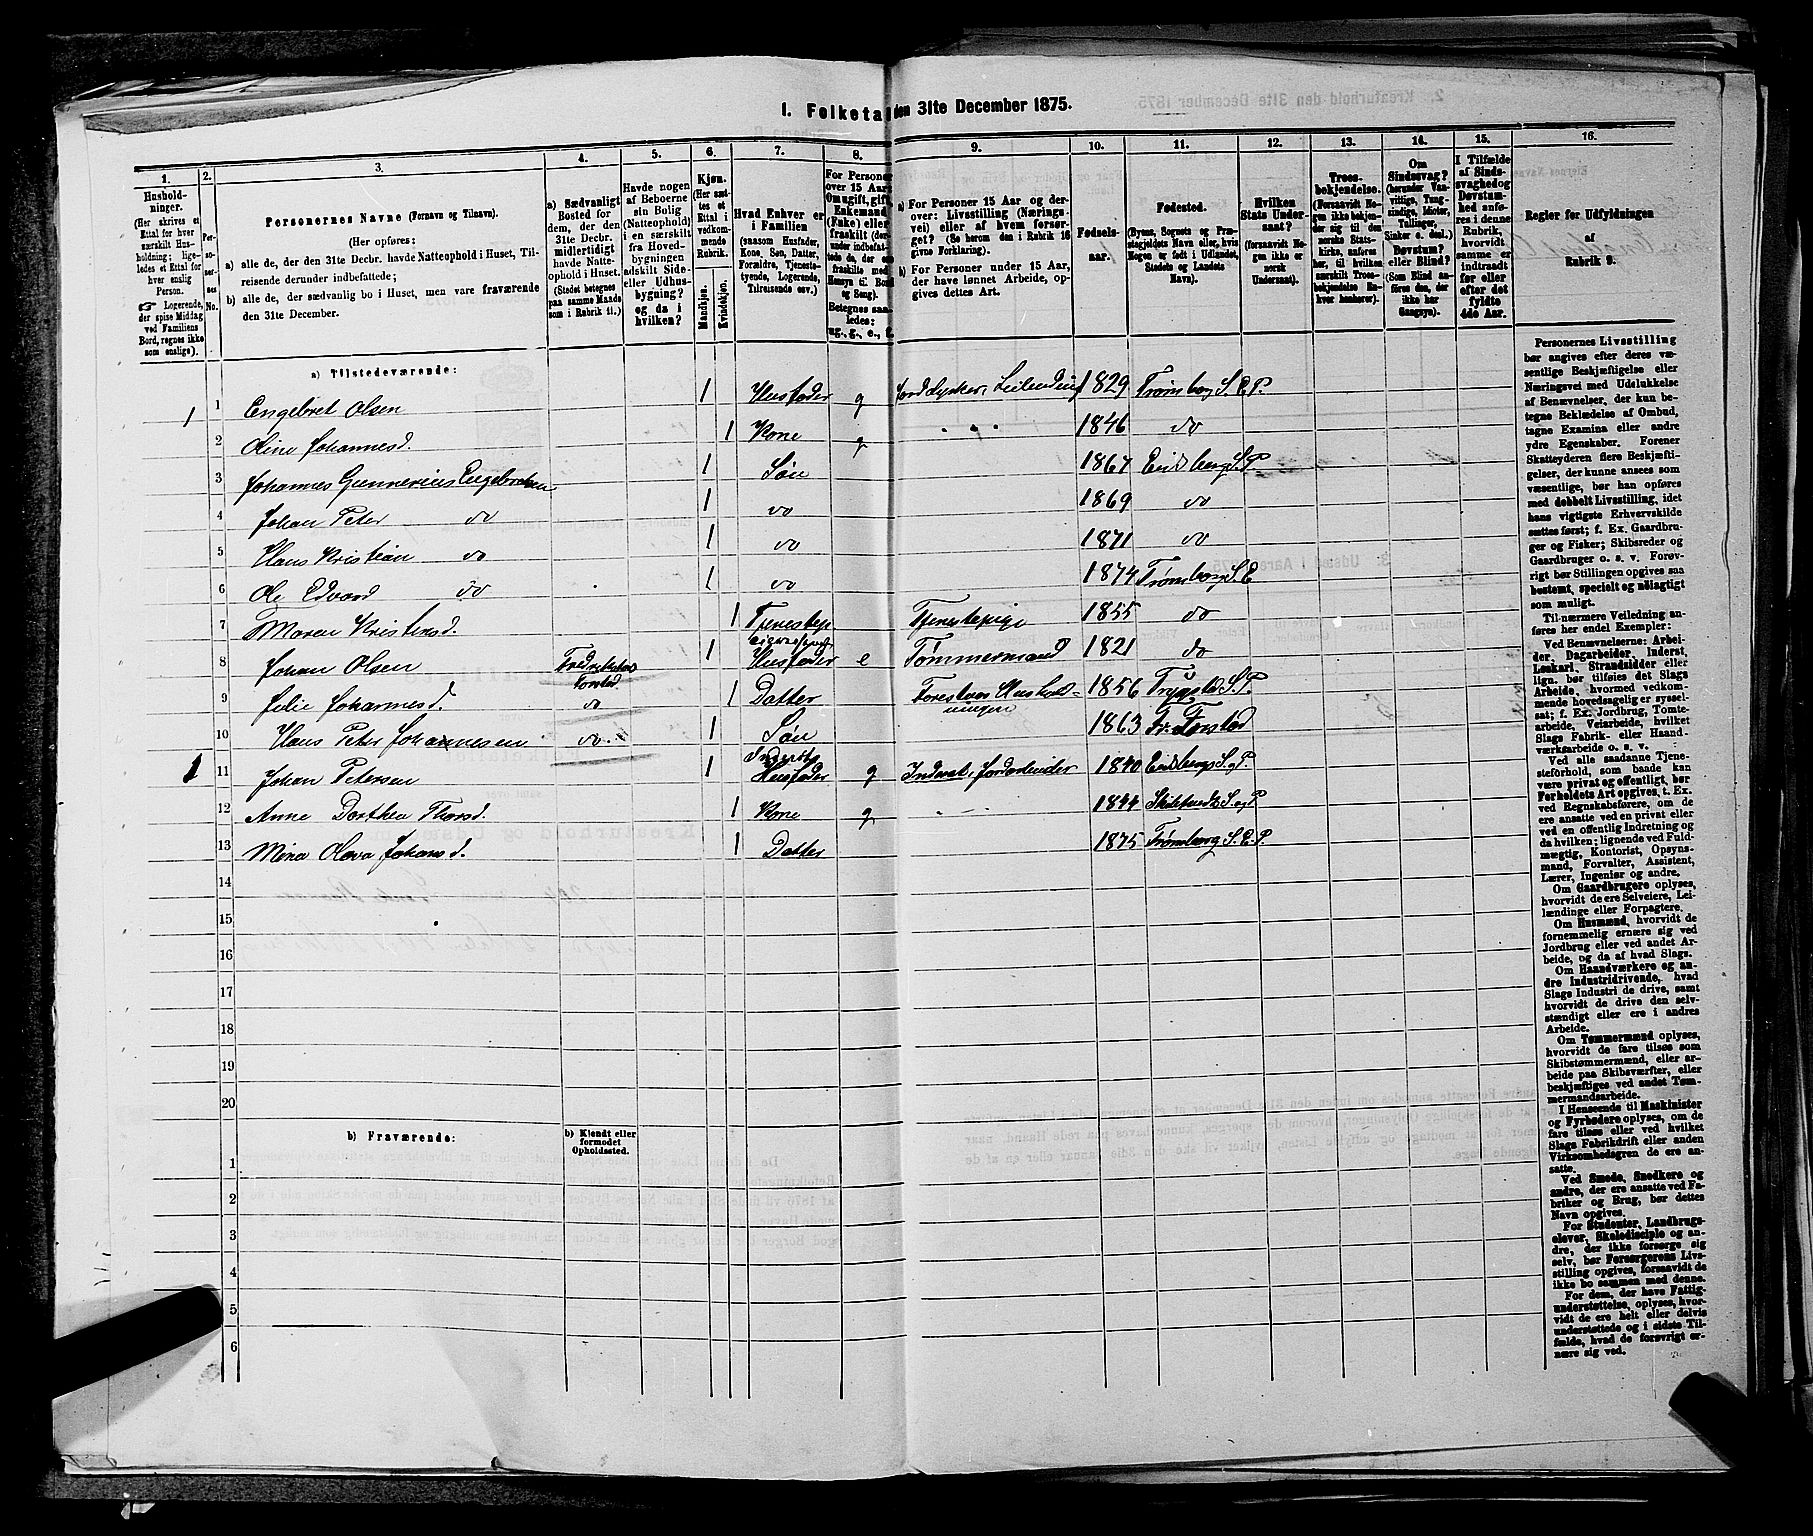 I. Folketa den 31te December 1875.
1. 2. 3. 4. 5. 6. 7. 8. 9. 10. 11. 12. 13. 14. 15. 16.
Hushold-
ninger.
(Her skrives et
Ettal for hver
særskilt Hus-
holdning; lige-
ledes et Ettal for
hver enslig
Person.
Logerende,
der spise Middag
ved Familiens
Bord, regnes ikke
som enslige).
Per-
so-
ner-
nes
No.
Personernes Navne (Fornavn og Tilnavn).
(Her opføres:
a) alle de, der den 31te Decbr. havde Natteophold i Huset, Til-
reisende derunder indbefattede;
b) alle de, der sædvanlig bo i Huset, men vare fraværende
den 31te December.
a) Sædvanligt
Bosted for
dem, der den
31te Decbr.
midlertidigt
havde Natte-
ophold i Huset.
(Stedet betegnes
paa samme Maade
som i Rubrik 11.)
Havde nogen
af Beboerne
sin Bolig
(Natteophold)
i en særskilt
fra Hoved-
bygningen
adskilt Side-
eller Udhus-
bygning?
og da i
hvilken?
Kjøn.
(Her sæt-
tes et
Ettal i
vedkom-
mende
Rubrik.
Mandkjøn.
Kvindekjøn.
Hvad Enhver er
i Familien
(saasom Husfader,
Kone, Søn, Datter,
Forældre, Tjeneste-
tyende, Logerende,
Tilreisende osv.)
For Personer
over 15 Aar:
Om ugift, gift,
Enkemand
(Enke) eller
fraskilt (der-
under indbefat-
tede de, der
ere fraskilte med
Hensyn til Bord
og Seng).
Betegnes saa-
ledes:
ug., g., e., f.
a) For Personer 15 Aar og der-
over: Livsstilling (Nærings-
vei) eller af hvem forsør-
get? (Se herom den i Rubrik 16
givne Forklaring).
b) For Personer under 15 Aar,
der have lønnet Arbeide, op-
gives dettes Art.
Fødsels-
aar.
Fødested.
(Byens, Sognets og Præ-
stegjeldets Navn eller, hvis
Nogen er født i Udlandet,
Stedets og Landets
Navn).
Hvilken
Stats Under-
saat?
(forsaavidt No-
gen ikke er
norsk
Undersaat).
Troes-
bekjendelse.
(Forsaavidt No-
gen ikke bekjen-
der sig til den
norske Stats-
kirke, anføres
her, til hvilken
særskilt Troes-
bekjendelse En-
hver henhører).
Om
Sindssvag?
(herunder Van-
vittige, Tung-
sindige, Idioter,
Tullinger,
Sinker o. desl.)
Døvstum?
eller Blind?
(Som Blind an-
føres den, der
ikke har
Gangsyn).
I Tilfælde
af Sinds-
svaghed og
Døvstum-
hed anfø-
res i denne
Rubrik,
hvorvidt
samme er
indtraadt
før eller
efter det
fyldte
4de Aar.
Regler for Udfyldningen
af
Rubrik 9.
a) Tilstedeværende:
1 1 Engebret Olsen 1 Husfader g Jordbruger, Leilending 1829 Trømborg S. E. P.
2 Oline Johannesd. 1 Kone g " 1846 do
3 Johannes Gunnerius Engebretsen 1 Søn 1867 Eidsberg S. P.
4 Johan Peter do 1 do 1869 do
5 Hans Kristian do 1 do 1871 do
6 Ole Edvard do 1 do 1874 Trømborg S. E
7 Maren Kristensd. 1 Tjenestep Tjenestepige 1855 do
8 Johan Olsen 1 Husfader e Tømmermand 1821 do
9 Julie Johannesd. do 1 Datter Forestaar Hushold-
ningen 1856 Trygstad S. P.
10 Hans Peter Johannesen do 1 Søn 1863 Fr. Forstad
1 11 Johan Petersen 1 Inderst
Husfader g Inderst, Jordarbeider 1840 Eidsberg S. og P.
12 Anne Dorthea Thorsd. 1 Kone g " 1844 Skibtvedt S. og P
13 Mina Olava Johansd. 1 Datter 1875 Trømborg S. E. P.
14
15
16
17
18
19
20
b) Fraværende:
b) Kjendt eller
formodet
Opholdssted.
1
2
3
4
5
6
Personernes Livsstilling
bør angives efter deres væ-
sentlige Beskjæftigelse eller
Næringsvei med Udelukkelse
af Benævnelser, der kun be-
tegne Beklædelse af Ombud,
tagne Examina eller andre
ydre Egenskaber. Forener
Skatteyderen flere Beskjæfti-
gelser, der kunne ansees som
væsentlige, bør han opføres
med dobbelt Livsstilling, idet
hans vigtigste Erhvervskilde
sættes først; f. Ex. Gaardbru-
ger og Fisker; Skibsreder og
Gaardbruger o. s. v. Forøv-
rigt bør Stillingen opgives saa
bestemt, specielt og nøiagtigt
som muligt.
Til nærmere Veiledning an-
føres her endel Exempler:
Ved Benævnelserne: Arbei-
der, Dagarbeider, Inderst,
Løskarl, Strandsidder eller
lign. bør tilføies det Slags
Arbeide, hvormed vedkom-
mende hovedsagelig er syssel-
sat; f. Ex. Jordbrug, Tomte-
arbeide, Veiarbeide, hvilket
Slags Fabrik- eller Haand-
værksarbeide o. s. v.
Ved alle saadanne Tjene-
steforhold, som baade kan
være privat og offentligt, bør
Forholdets Art opgives, t. Ex.
ved Regnskabsførere, om de
ere ansatte ved en privat eller
ved en offentlig Indretning og
da hvilken; lignende ved Fuld-
mægtig, Kontorist, Opsyns-
mand, Forvalter, Assistent,
Lærer, Ingeniør og andre.
Om Gaardbrugere oplyses,
hvorvidt de ere Selveiere, Lei-
lændinge eller Forpagtere.
Om Husmænd, hvorvidt de
fornemmelig ernære sig ved
Jordbrug eller ved andet Ar-
beide, og da af hvad Slags.
Om Haandværkere og an-
dre Industridrivende, hvad
Slags Industri de drive, samt
hvorvidt de drive den selv-
stændigt eller ere i andres
Arbeide.
Om Tømmermænd oplyses,
hvorvidt de fare tilsøs som
Skibstømmermænd, eller ar-
beide paa Skibsværfter, eller
beskjæftiges ved andet Tøm-
mermandsarbeide.
I Henseende til Maskinister
og Fyrbødere oplyses, om de
fare tilsøs eller ved hvilket
Slags Fabrikdrift eller anden
Virksomhedsgren de ere an-
satte.
Ved Smede, Snedkere og
andre, der ere ansatte ved Fa-
briker og Brug, bør dettes
Navn opgives.
For Studenter, Landbrugs-
elever, Skoledisciple og an-
dre, der ikke forsørge sig
selv, bør Forsørgerens Livs-
stilling opgives, forsaavidt de
ikke bo sammen med denne.
For dem, der have Fattig-
understøttelse, oplyses, hvor-
vidt de ere helt eller delvis
understøttede og i sidste Til-
fælde, hvad de forøvrigt er-
nære sig ved.